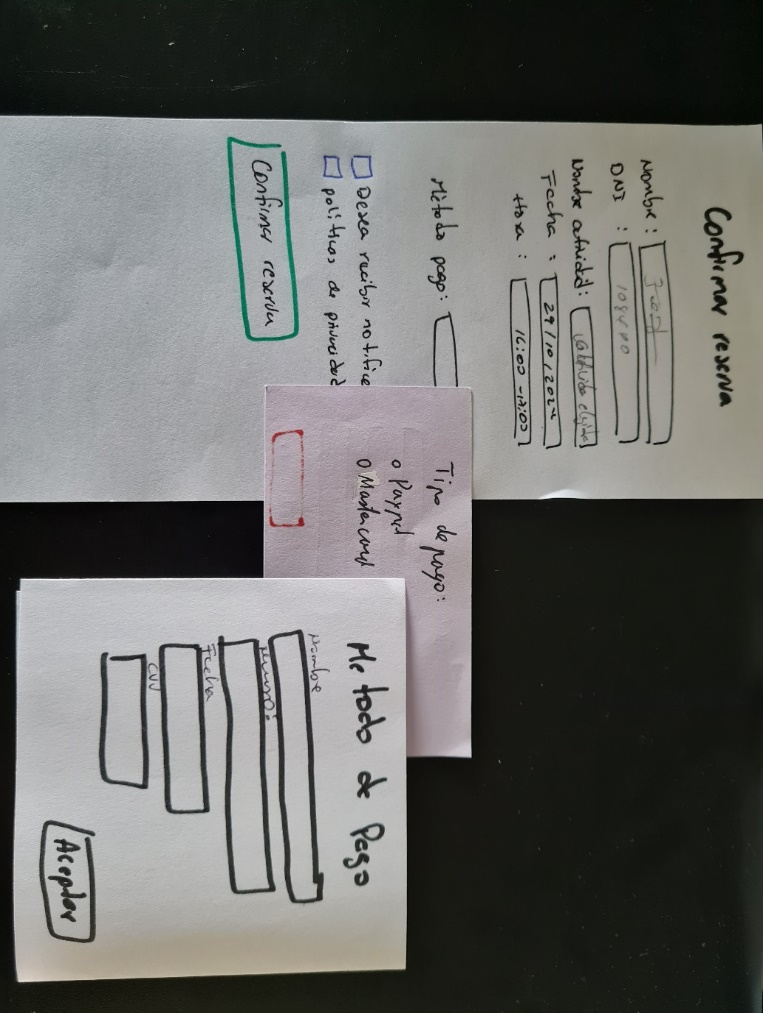 Confirmar reserva
Nombre :
DNI :
Nombre actividad:
Fecha : 29/10/2024
Hora : 16:00-17:00
Método pago:
Desea recibir notifica
políticas de privacidad
Confirmar reserva
Tipo de pago:
o Paypal
o Mastercard
Metodo de Pago
Nombre
Fecha
CVV
Aceptar